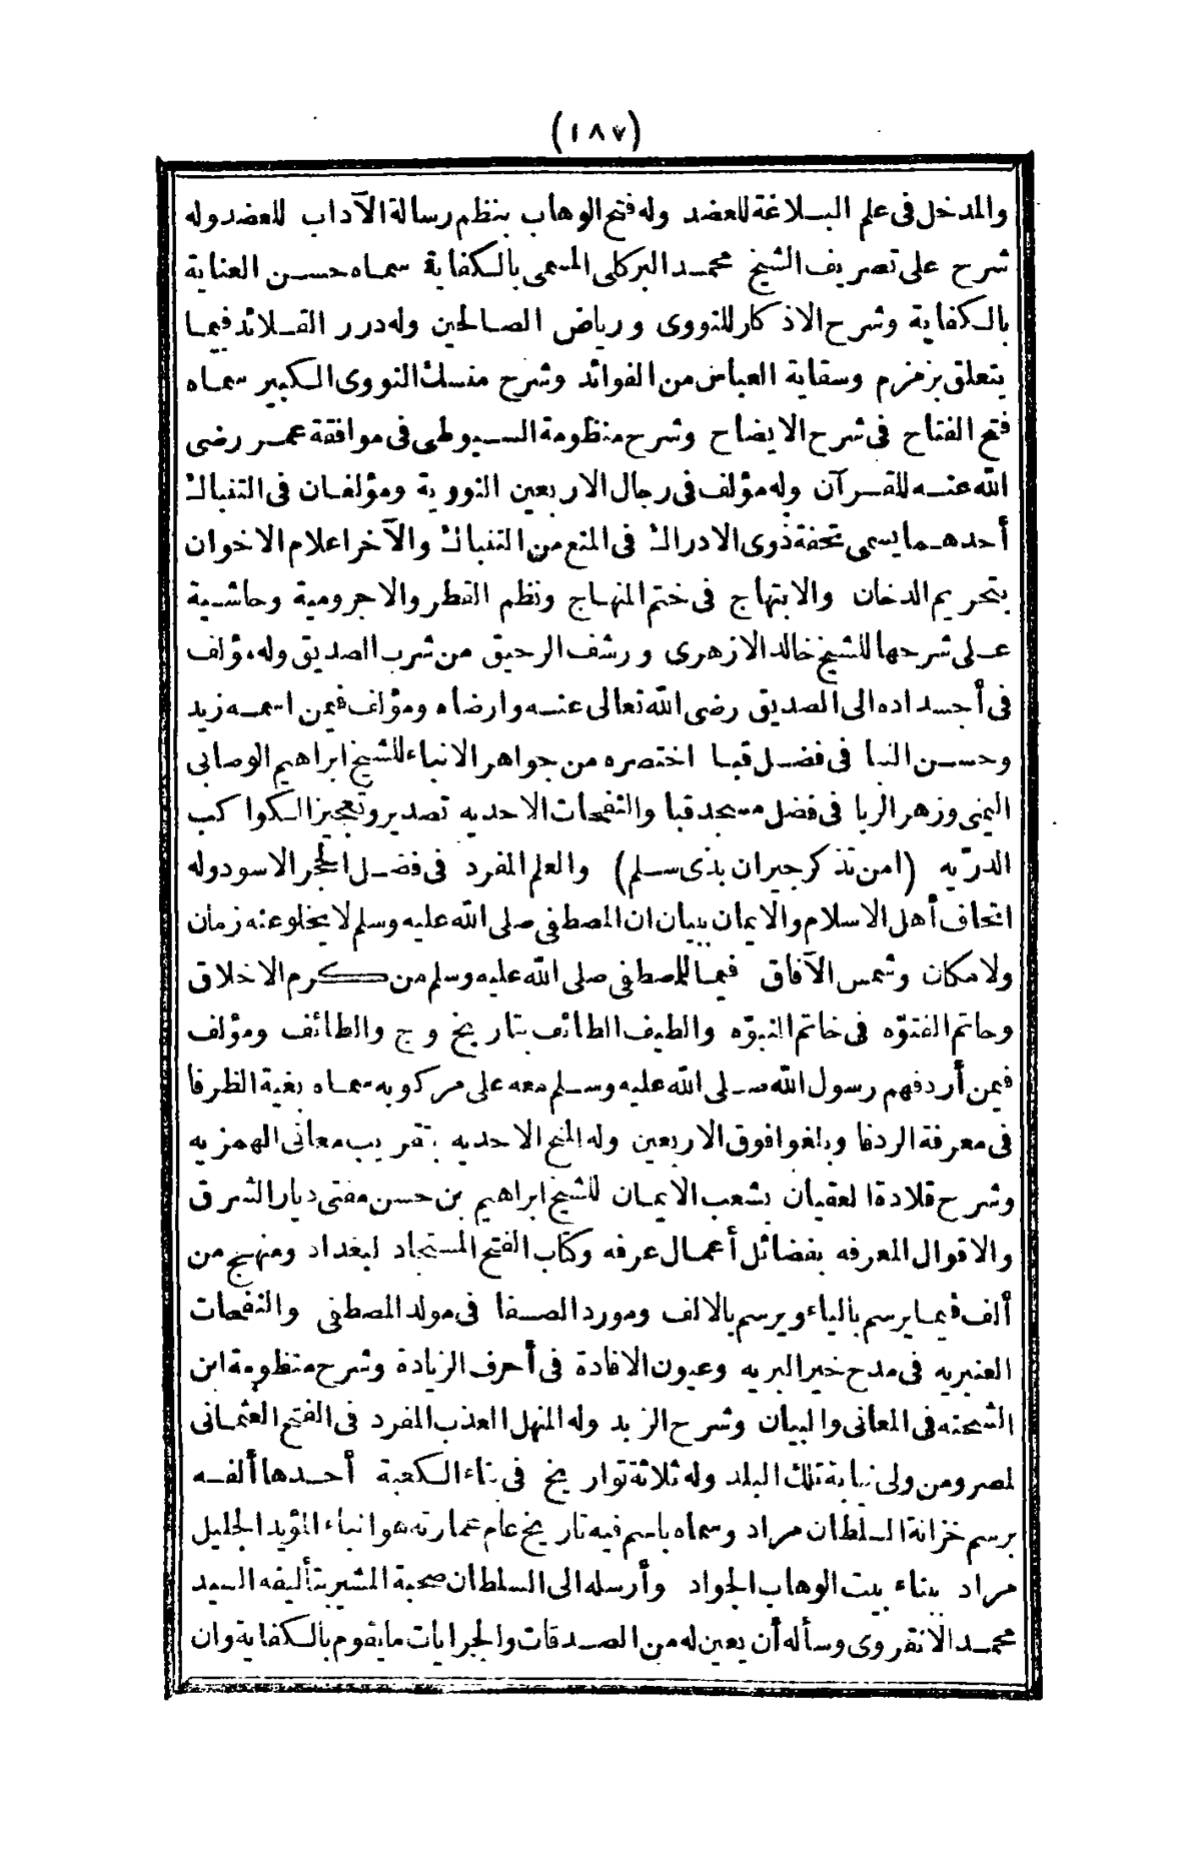 (١٨٧)
والمدخل فى علم البلاغة للعضد وله فتح الوهاب بنظم رسالة الآداب للعضد وله
شرح على تصريف الشيخ محمد البركلى المسمى بالكفاية سماه حسن العناية
بالكفاية وشرح الاذكار للنووى ورياض الصالحين وله درر القلائد فيما
يتعلق بزمزم وسقاية العباس من الفوائد وشرح منسك النووى الكبير سماه
فتح الفتاح فى شرح الايضاح وشرح منظومة السيوطى فى موافقة عمر رضى
الله عنه للقرآن وله مؤلف فى رجال الاربعين النووية ومؤلفان فى التنباك
أحدهما يسمى تحفة ذوى الادراك فى المنع من التنباك والآخر اعلام الاخوان
بتحريم الدخان والابتهاج فى ختم المنهاج ونظم القطر والاجرومية وحاشية
على شرحها للشيخ خالد الازهرى ورشف الرحيق من شرب الصديق وله مؤلف
فى أجداده الى الصديق رضى الله تعالى عنه وارضاه ومؤلف فيمن اسمه زيد
وحسن النبا فى فضل قبا اختصره من جواهر الانباء للشيخ ابراهيم الوصابى
اليمنى وزهر الربا فى فضل مسجد قبا والنفحات الاحديه تصدير وتعجيز الكواكب
الدرّيه (امن تذكر جيران بذى سلم) والعلم المفرد فى فضل الحجر الاسود وله
اتحاف أهل الاسلام والايمان ببيان ان المصطفى صلى الله عليه وسلم لا يخلو عنه زمان
ولا مكان وشمس الآفاق فيما للمصطفى صلى الله عليه وسلم من كرم الاخلاق
وحاتم الفتوّه فى خاتم النبوّه والطيف الطائف بتاريخ وج والطائف ومؤلف
فيمن أردفهم رسول الله صلى الله عليه وسلم معه على مركوبه سماه بغية الظرفا
فى معرفة الردفا وبلغوا فوق الاربعين وله المنح الاحديه بتقريب معانى الهمزيه
وشرح قلادة العقيان بشعب الايمان للشيخ ابراهيم بن حسن مفتى ديار الشرق
والاقوال المعرفه بفضائل أعمال عرفه وكتاب الفتح المستجاد لبغداد ومنهج من
ألف فيما يرسم بالياء ويرسم بالالف ومورد الصفا فى مولد المصطفى والنفحات
العنبريه فى مدح خير البريه وعيون الافادة فى أحرف الزيادة وشرح منظومة ابن
الشحنه فى المعانى والبيان وشرح الزبد وله المنهل العذب المفرد فى الفتح العثمانى
لمصر ومن ولى نيابة تلك البلد وله ثلاثة تواريخ فى بناء الكعبة أحدها ألفه
برسم خزانة السلطان مراد وسماه باسم فيه تاريخ عام عمارته هو انباء المؤيد الجليل
مراد ببناء بيت الوهاب الجواد وأرسله الى السلطان صحبة المشير بتأليفه السيد
محمد الانقروى وسأله أن يعين له من الصدقات والجرايات ما يقوم بالكفاية وان